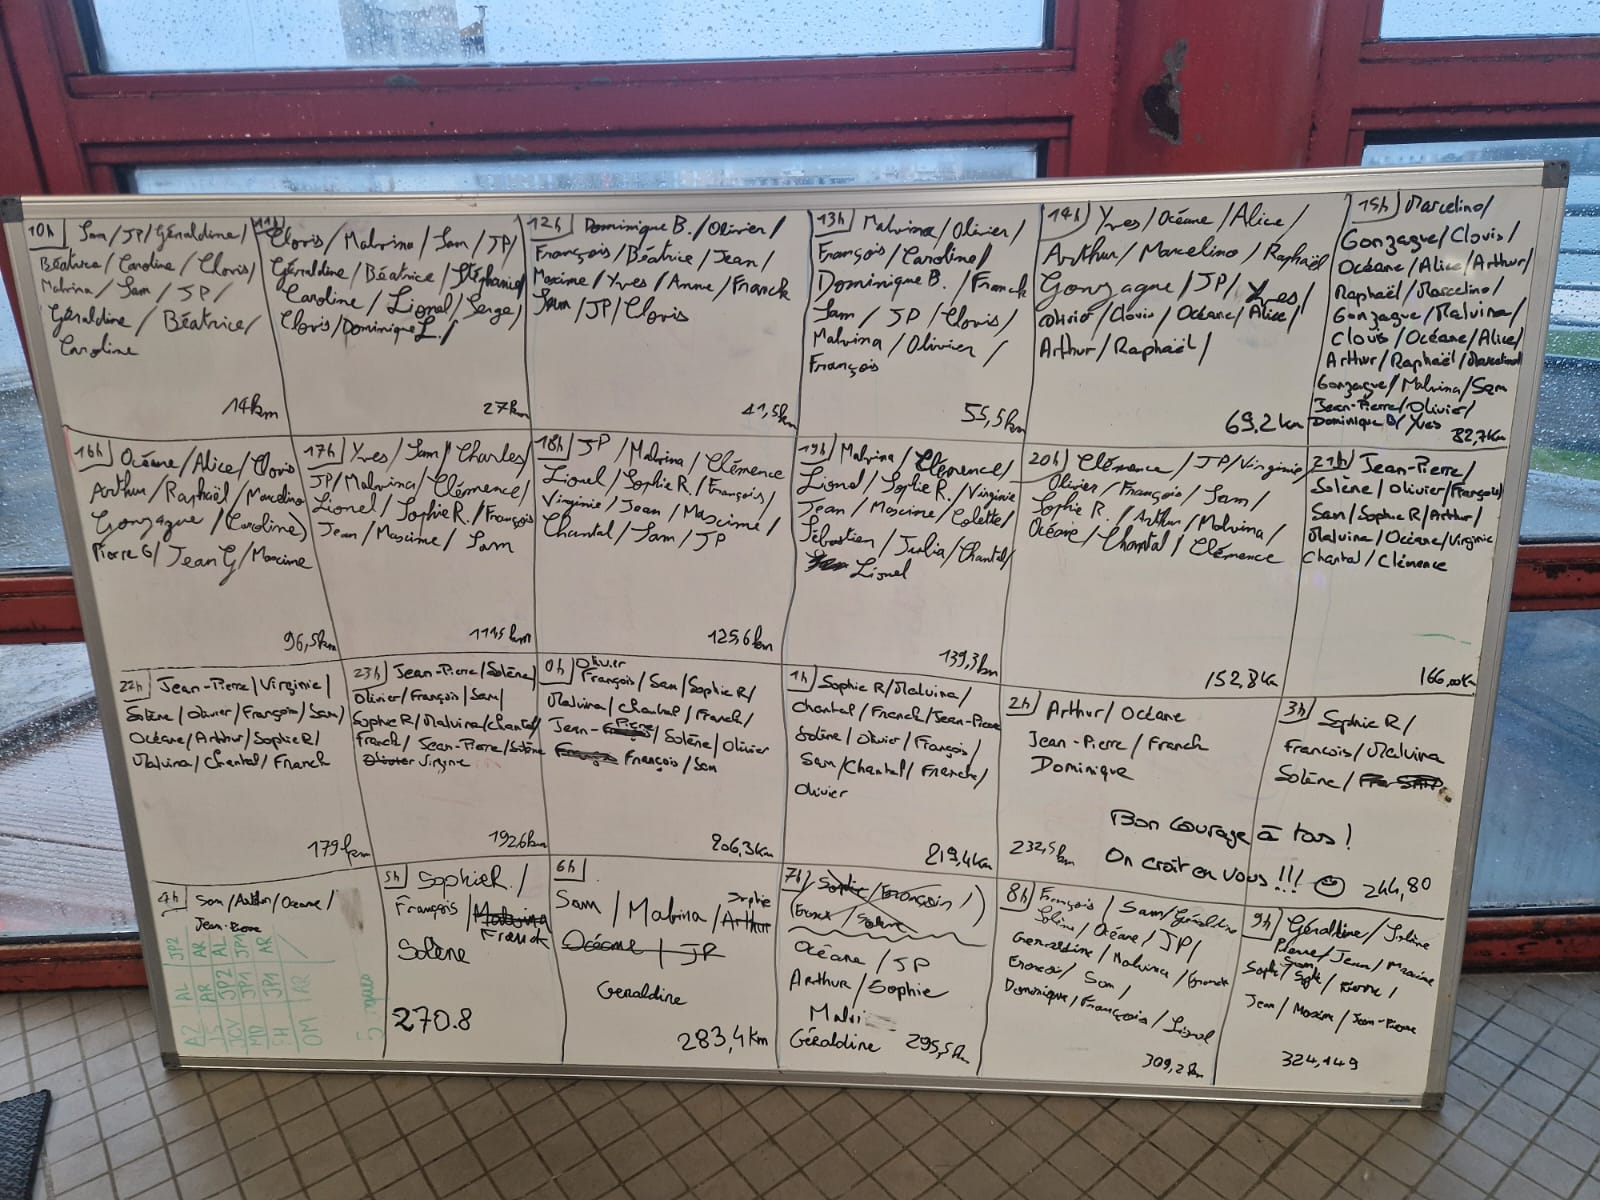 10h Sam/JP/Géraldine/
Béatrice/Caroline/Clovis/
Malvina/Sam/JP/
Géraldine/Béatrice/
Caroline
14km
11h Clovis/Malvina/Sam/JP/
Géraldine/Béatrice/Stéphanie/
Caroline/Lionel/Serge/
Clovis/Dominique L./
27km
12h Dominique B./Olivier/
François/Béatrice/Jean/
Maxime/Yves/Anne/Franck
Sam/JP/Clovis
41,5km
13h Malvina/Olivier/
François/Caroline/
Dominique B./Franck
Sam/JP/Clovis/
Malvina/Olivier/
François
55,5km
14h Yves/Océane/Alice/
Arthur/Marcelino/Raphaël
Gonzague/JP/Yves/
Clovis/Océane/Alice/
Arthur/Raphaël/
69,2km
15h Marcelino/
Gonzague/Clovis/
Océane/Alice/Arthur/
Raphaël/Marcelino/
Gonzague/Malvina/
Clovis/Océane/Alice/
Arthur/Raphaël/Marcelino
Gonzague/Malvina/Sam
Jean-Pierre/Olivier/
Dominique B/Yves
82,7Km
16h Océane/Alice/Clovis
Arthur/Raphaël/Marcelino
Gonzague/(Caroline)
Pierre G/Jean G/Maxime
96,5km
17h Yves/Sam/Charles/
JP/Malvina/Clémence/
Lionel/Sophie R./François
Jean/Maxime/Sam
111,5km
18h JP/Malvina/Clémence
Lionel/Sophie R./François/
Virginie/Jean/Maxime/
Chantal/Sam/JP
125,6km
19h Malvina/Clémence/
Lionel/Sophie R./Virginie
Jean/Maxime/Colette/
Sébastien/Julia/Chantal/
Lionel
139,3km
20h Clémence/JP/Virginie/
Olivier/François/Sam/
Sophie R./Arthur/Malvina/
Océane/Chantal/Clémence
152,8Km
21h Jean-Pierre/
Solène/Olivier/François/
Sam/Sophie R/Arthur/
Malvina/Océane/Virginie
Chantal/Clémence
166,00Km
22h Jean-Pierre/Virginie/
Solène/Olivier/François/Sam/
Océane/Arthur/Sophie R/
Malvina/Chantal/Franck
179km
23h Jean-Pierre/Solène/
Olivier/François/Sam/
Sophie R/Malvina/Chantal/
Franck/Jean-Pierre/Solène
Olivier Virgine
192,6km
0h Olivier
François/Sam/Sophie R/
Malvina/Chantal/Franck/
Jean-Pierre/Solène/Olivier
François/Sam
206,3Km
1h Sophie R/Malvina/
Chantal/Franck/Jean-Pierre
Solène/Olivier/François/
Sam/Chantal/Franck/
Olivier
219,4Km
2h Arthur/Océane
Jean-Pierre/Franck
Dominique
232,5km
3h Sophie R/
François/Malvina
Solène/
Bon courage à tous !
On croit en vous !!!
244,80
4h Sam/Arthur/Océane/
Jean-Pierre
JP2 AR AL JP1 AR
AL AR JP2 JP1 JP1 AR
AZ JCV MD OM
5h Sophie R./
François/Malvina
Franck
Solène
270.8
6h
Sam/Malvina/Arthur
Sophie
Océane/JP
Géraldine
283,4Km
7h Sophie/François/)
Solène
Océane/JP
Arthur/Sophie
Malvi
Géraldine 295,5km
8h François/Sam/Géraldine
Solène/Océane/JP/
Géraldine/Malvina/Franck
François/Sam/
Dominique/François/Lionel
309,2km
9h Géraldine/Solène
Pierre/Jean/Maxime
Sam
Sophie/Pierre/
Jean/Maxime/Jean-Pierre
324,149